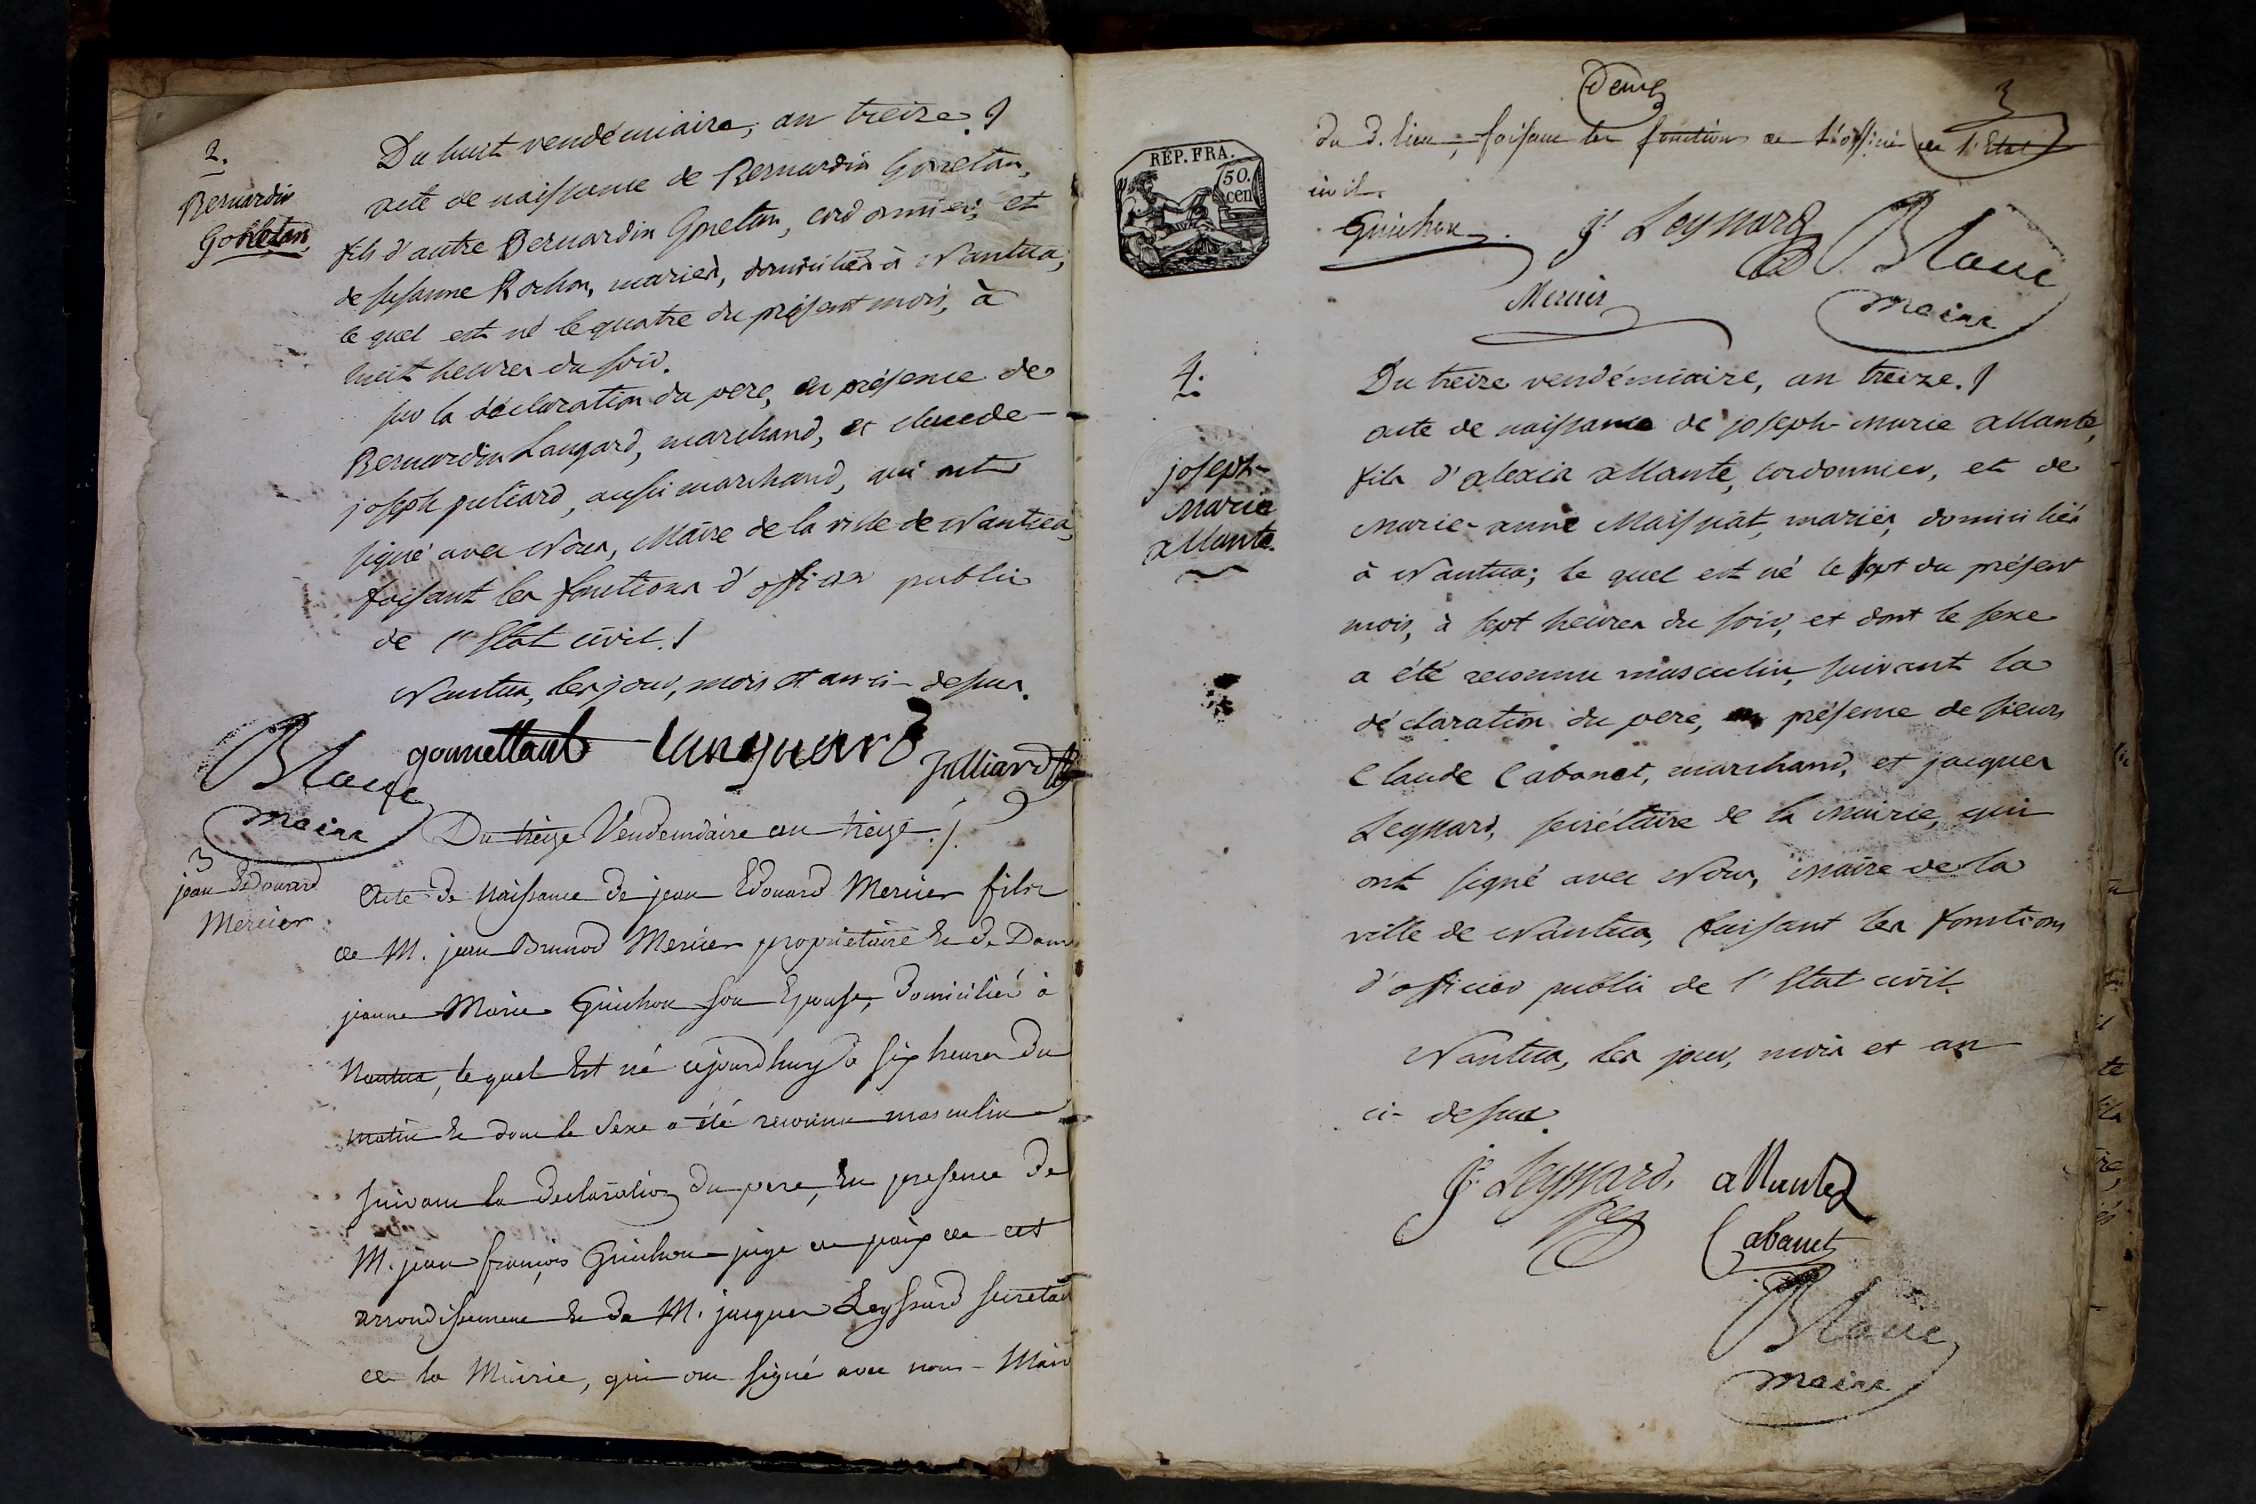 2.
Bernardin
Gonetan
Du huit vendémiaire, an treize.
acte de naissance de Bernardin Gonetan,
fils d'autre Bernardin Gonetan, cordonnier, et
de susanne Rochon, mariés, domiciliés à Nantua,
le quel est né le quatre du présent mois, à
huit heures du soir.
sur la déclaration du pere, en présence de
Bernardin Langard, marchand, et claude
joseph juliard, aussi marchand, qui ont
signé avec Nous, Maire de la ville de Nantua,
faisant les fonctions d'officier public
de l'Etat civil.
Nantua, les jour, mois et an ci-dessus.
gonnettant Languard Julliard
Blanc
maire
3
jean Edouard
Mercier
Du treize Vendemiaire an treize.
Acte de Naissance de jean Edouard Mercier fils
de M. jean Brunod Mercier propriétaire et de Dame
jeanne Marie Guichon son Epouse, domicilié à
Nantua, le quel Est né cejourdhuy à six heures du
matin et dont le sexe a été reconnu masculin
suivant la declaration du pere, En presence de
M. jean françois Guichon juge de paix de cet
arrondissement et de M. jacques Leyssard secretaire
de la Mairie, qui ont signé avec nous Maire
deux
3
du d. lieu, faisant les fonctions de l'officier de l'Etat
civil.
RÉP. FRA.
50.
cen
Guichon jˢ Leyssard Blanc
Mercier maire
4.
joseph-
marie
allante.
Du treize vendémiaire, an treize.
acte de naissance de joseph-marie allante,
fils d'alexis allante, cordonnier, et de
marie-anne Maissiat, mariés, domiciliés
à Nantua; le quel est né le sept du présent
mois, à sept heures du soir, et dont le sexe
a été reconnu masculin, suivant la
déclaration du pere, en présence de sieurs
Claude Cabanet, marchand, et jacques
Leyssard, secrétaire de la mairie, qui
ont signé avec Nous, maire de la
ville de Nantua, faisant les fonctions
d'officier public de l'Etat civil.
Nantua, les jour, mois et an
ci-dessus.
jˢ Leyssard. allante
Cabanet
Blanc
maire